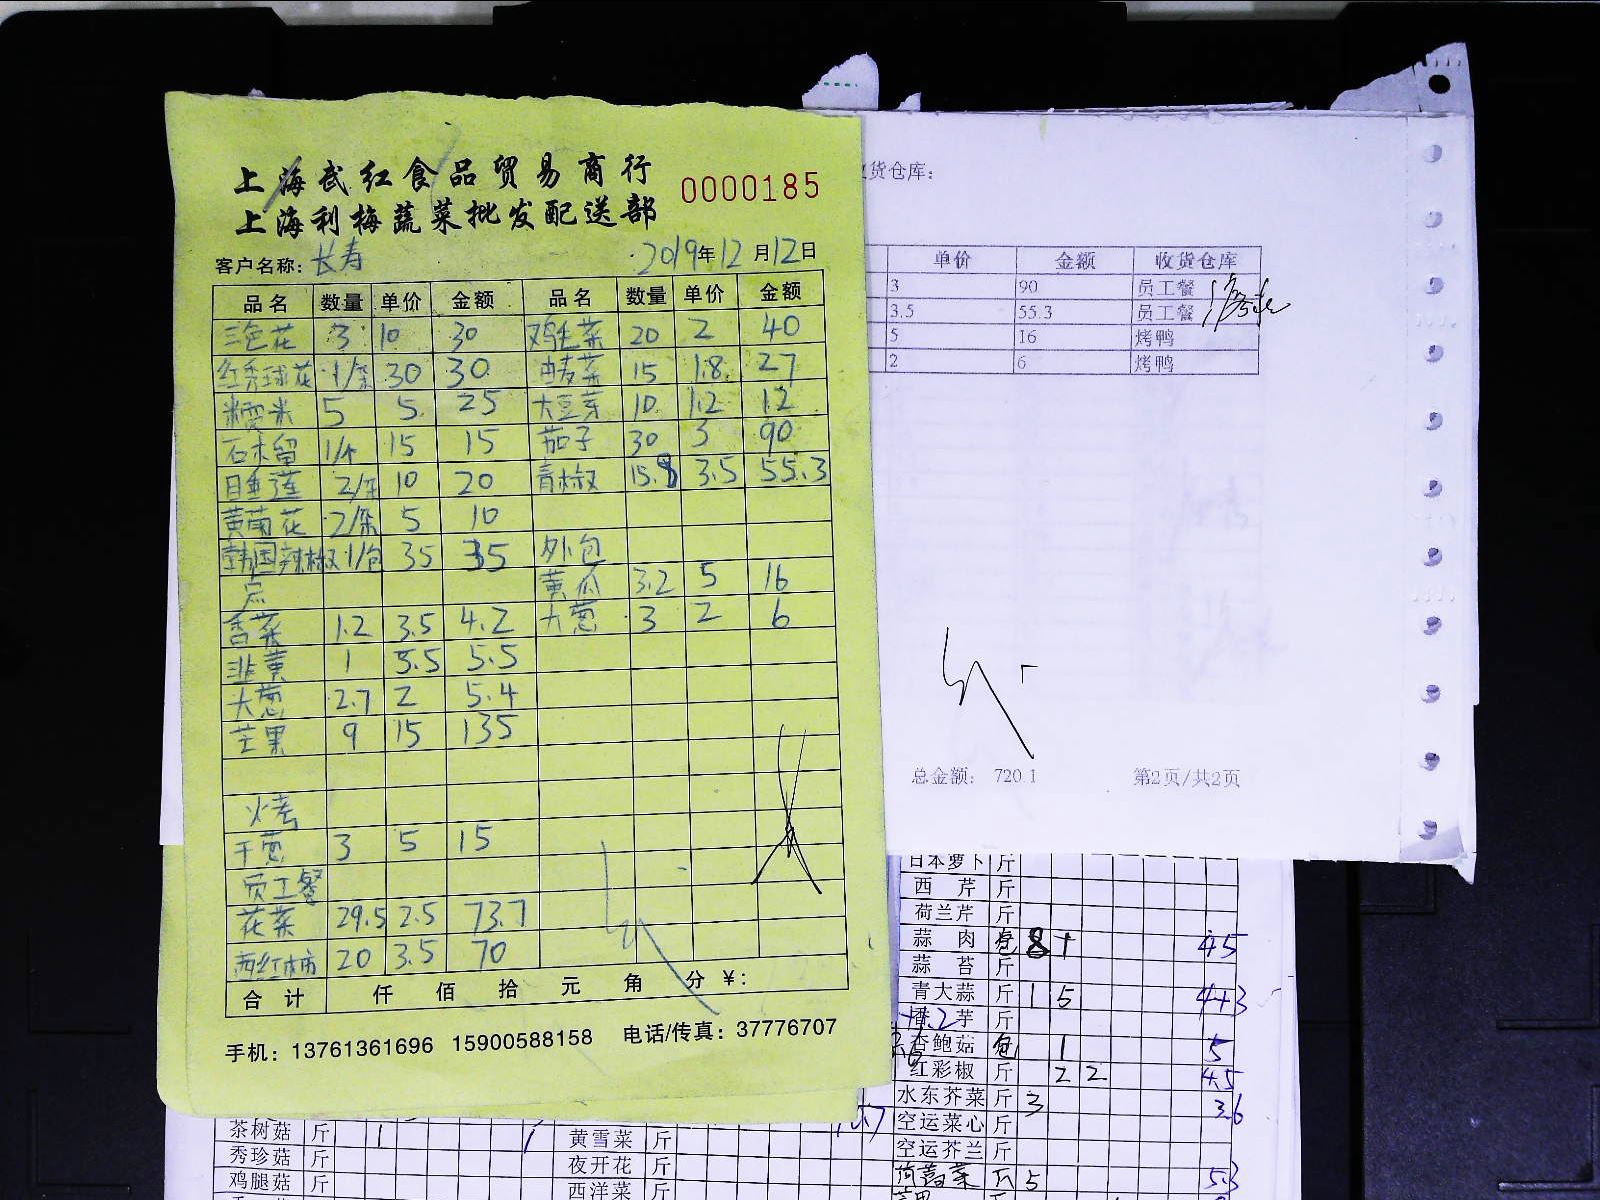 上海武红食品贸易商行
上海利梅蔬菜批发配送部
0000185
客户名称: 长寿 2019年12月12日
品名 数量 单价 金额 品名 数量 单价 金额
三色花 3 10 30 鸡毛菜 20 2 40
红秀球花 1/条 30 30 油麦菜 15 1.8 27
糯米 5 5 25 大豆芽 10 1.2 12
石木留 1/个 15 15 茄子 30 3 90
日垂莲 2/条 10 20 青椒 15.8 3.5 55.3
黄菊花 2/条 5 10
韩国辣椒 1/包 35 35 外包
点 黄瓜 3.2 5 16
香菜 1.2 3.5 4.2 大葱 3 2 6
韭黄 1 5.5 5.5
大葱 2.7 2 5.4
芒果 9 15 135
火考
干葱 3 5 15
员工餐
花菜 29.5 2.5 73.7
西红柿 20 3.5 70
合计 仟 佰 拾 元 角 分 ¥:
手机: 13761361696 15900588158 电话/传真: 37776707
收货仓库:
单价 金额 收货仓库
3 90 员工餐
3.5 55.3 员工餐
5 16 烤鸭
2 6 烤鸭
总金额: 720.1 第2页/共2页
日本萝卜 斤
西芹 斤
荷兰芹 斤
蒜肉 8 45
蒜苔 斤
青大蒜 斤 1 5
芋 斤
杏鲍菇 包 1 5
红彩椒 斤 2 2 4.5
水东芥菜 斤 3 3.6
空运菜心 斤
空运芥兰 斤
5 5.3
茶树菇 斤 1 1 黄雪菜 斤
秀珍菇 斤 夜开花 斤
鸡腿菇 斤 西洋菜 斤